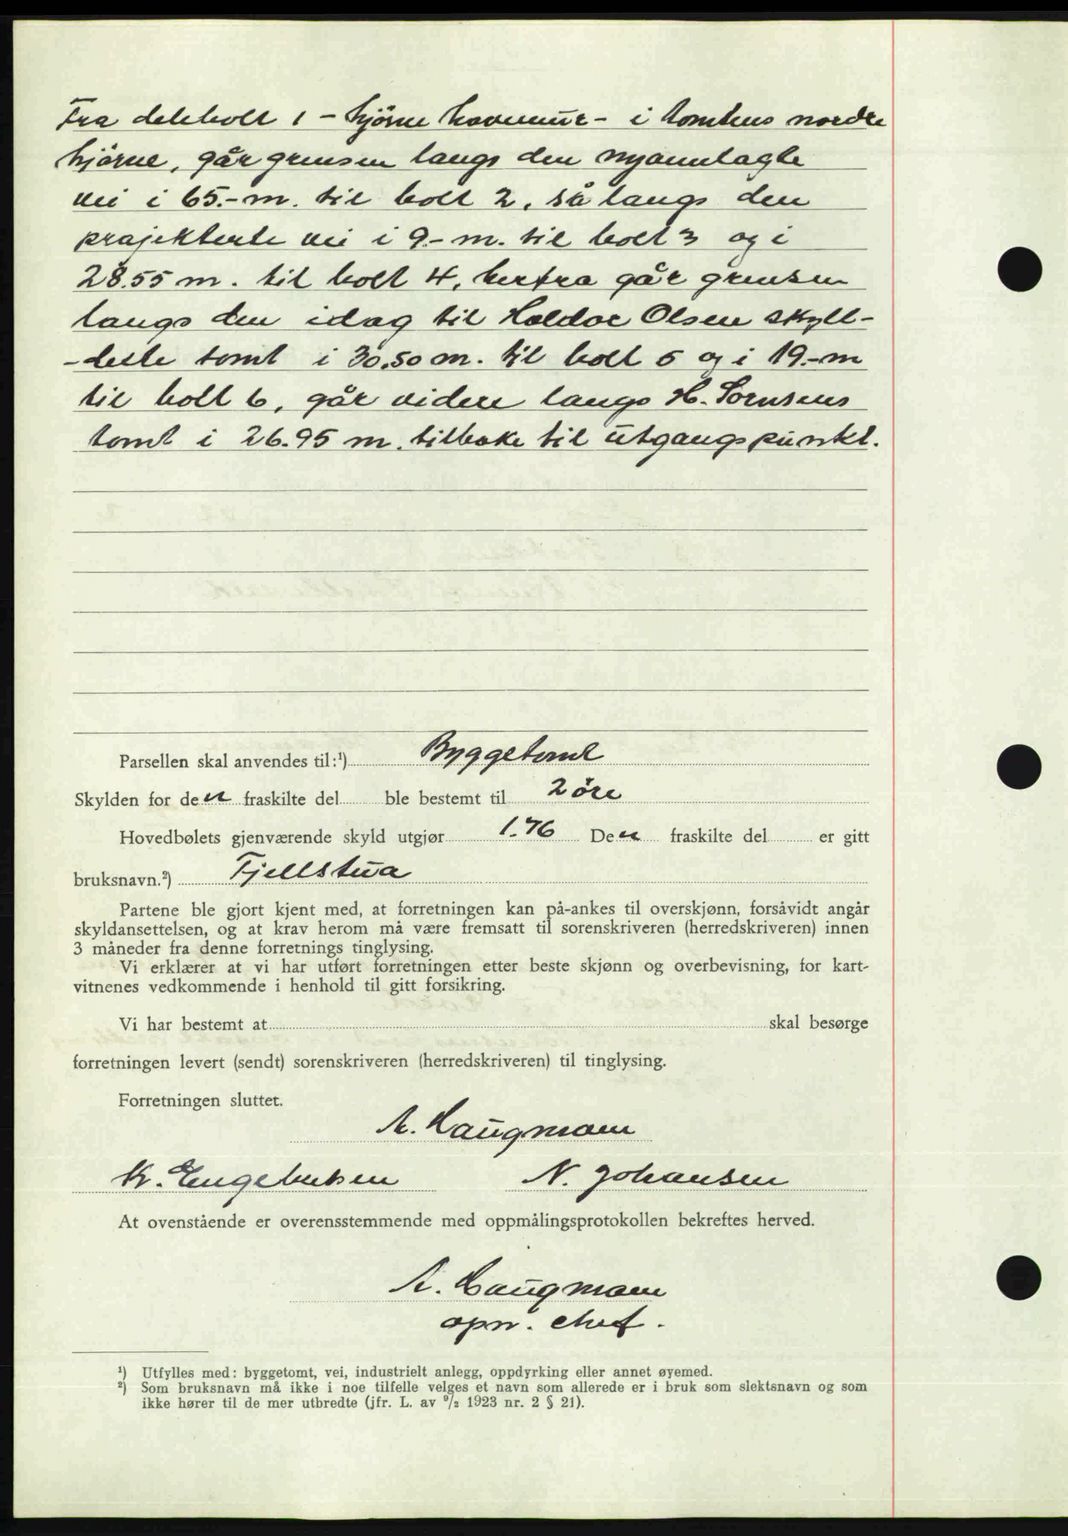 Fra delebolt 1 - hjörne havemür - i tomtens nordre
hjörne, går grensen langs den nyanlagte
vei i 65.- m. til bolt 2, så langs den
prajekterte vei i 9.- m. til bolt 3 og i
28.55 m. til bolt 4, herfra går grensen
langs den idag til Haldor Olsen skyll-
-delte tomt i 30.50 m. til bolt 5 og i 19.-m
til bolt 6, går videre langs H. Sørensens
tomt i 26.95 m. tilbake til utgangspunkt.
Parsellen skal anvendes til:¹) Byggetomt
Skylden for den fraskilte del ble bestemt til 2 öre
Hovedbølets gjenværende skyld utgjør 1.76 Den fraskilte del er gitt
bruksnavn.²) Fjellstua
Partene ble gjort kjent med, at forretningen kan på-ankes til overskjønn, forsåvidt angår
skyldansettelsen, og at krav herom må være fremsatt til sorenskriveren (herredskriveren) innen
3 måneder fra denne forretnings tinglysing.
Vi erklærer at vi har utført forretningen etter beste skjønn og overbevisning, for kart-
vitnenes vedkommende i henhold til gitt forsikring.
Vi har bestemt at skal besørge
forretningen levert (sendt) sorenskriveren (herredskriveren) til tinglysing.
Forretningen sluttet.
A. Haugmoen
K. Engebretsen N. Johansen
At ovenstående er overensstemmende med oppmålingsprotokollen bekreftes herved.
A. Haugmoen
opm. chef.
¹) Utfylles med: byggetomt, vei, industrielt anlegg, oppdyrking eller annet øyemed.
²) Som bruksnavn må ikke i noe tilfelle velges et navn som allerede er i bruk som slektsnavn og som
ikke hører til de mer utbredte (jfr. L. av ⁹/₂ 1923 nr. 2 § 21).